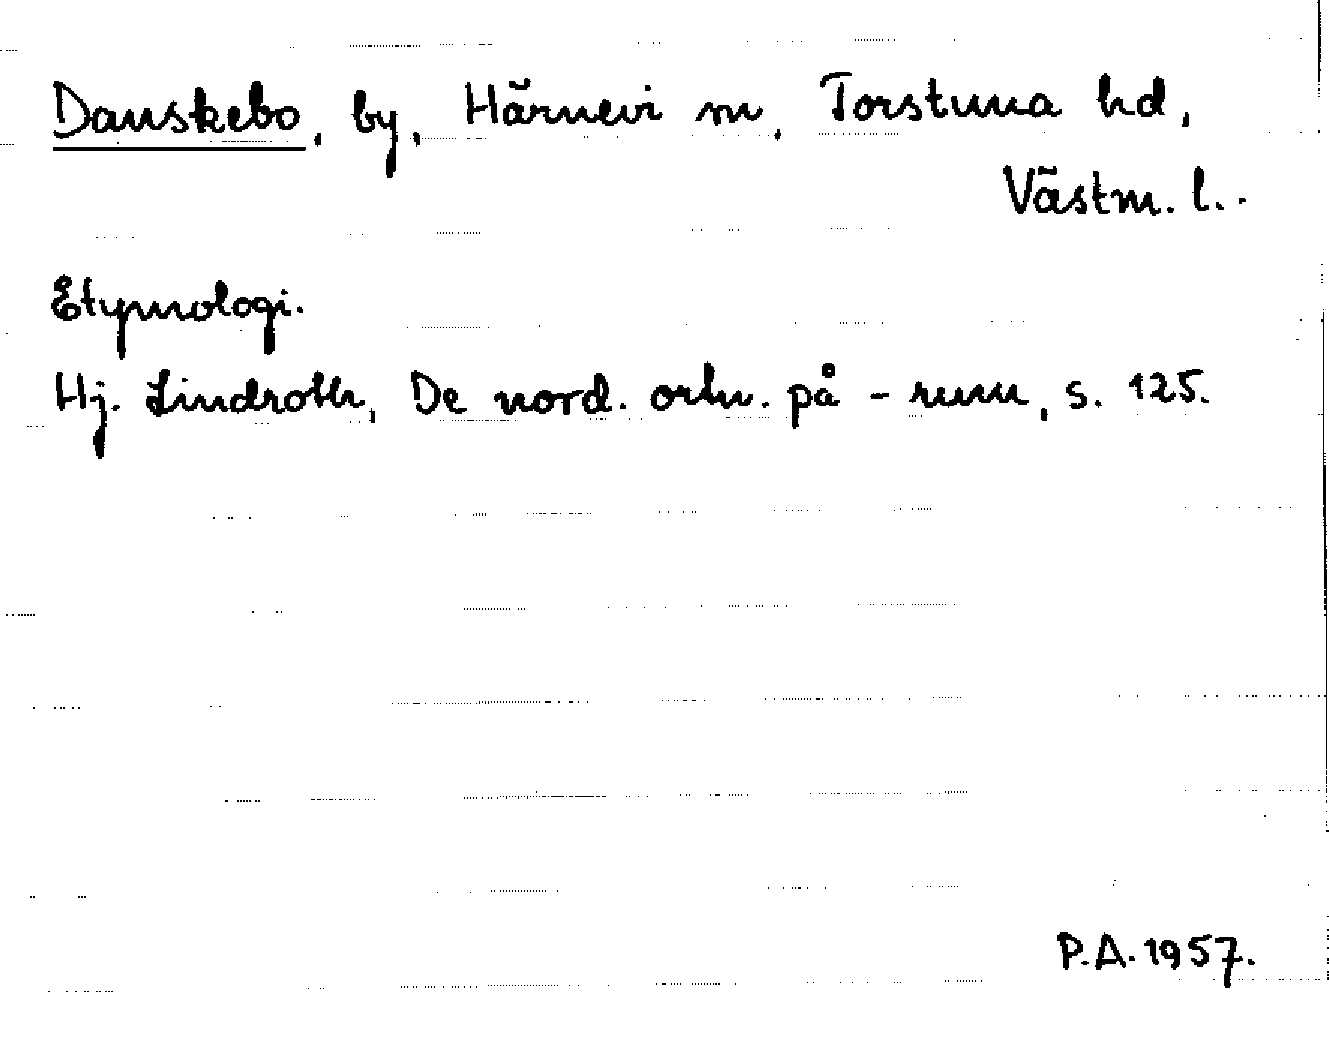 Danskebo, by, Härnevi sn, Torstuna hd,
Västm. l..
Etymologi.
Hj. Lindroth, De nord. ortn. på - renn, s. 125.
P.A. 1957.